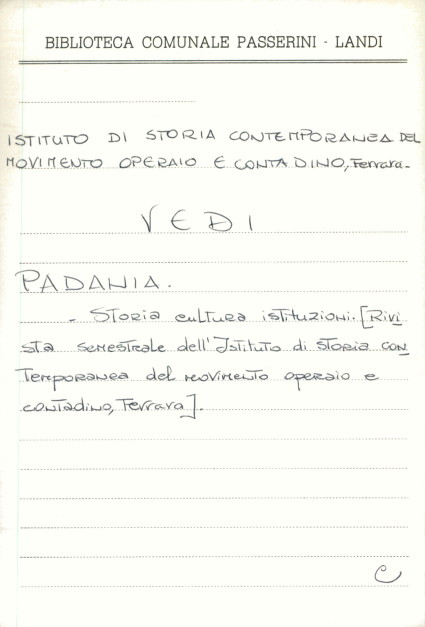 BIBLIOTECA COMUNALE PASSERINI - LANDI
ISTITUTO DI STORIA CONTEMPORANEA DEL
MOVIMENTO OPERAIO E CONTADINO, Ferrara.
VEDI
PADANIA.
- Storia cultura istituzioni. [Rivi
sta semestrale dell'Istituto di storia con
temporanea del movimento operaio e
contadino, Ferrara].
C